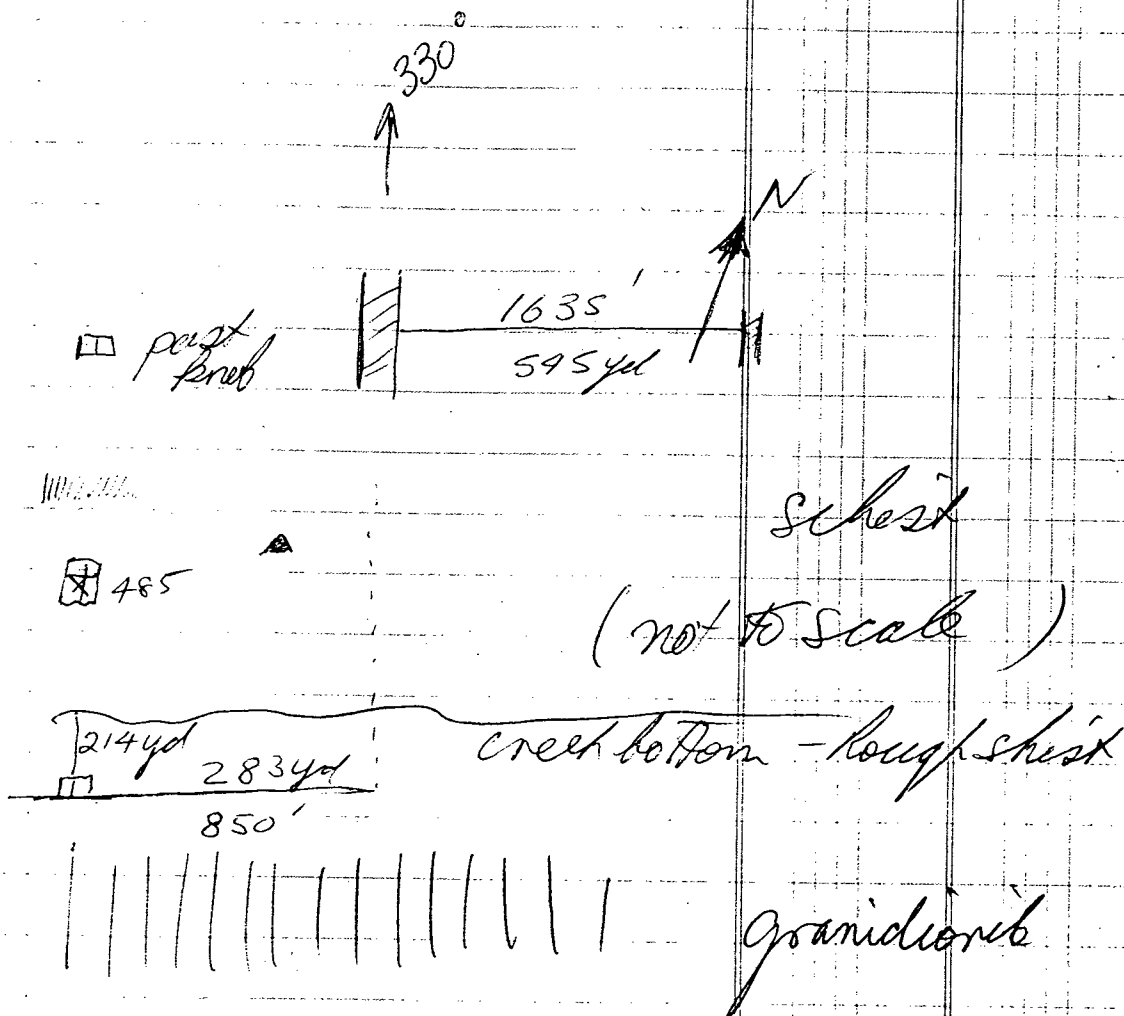 330°
N
1635'
545 yd
past
knob
schest
485
(not to scale)
214yd
creek bottom - Rough shist
283yd
850'
granidiorite